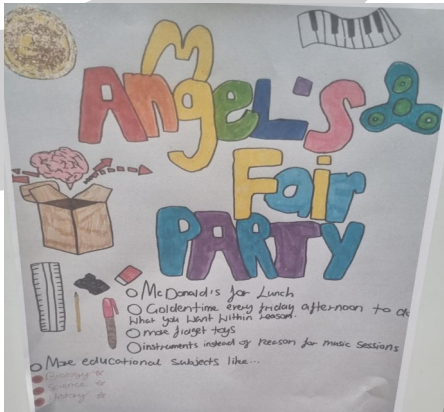 Angel's
Fair
PARTY
McDonald's for Lunch
Goldentime every friday afternoon to do
what you want within reason.
more fidget toys
instruments instead of reason for music sessions
More educational subjects like...
Biology
Science
History